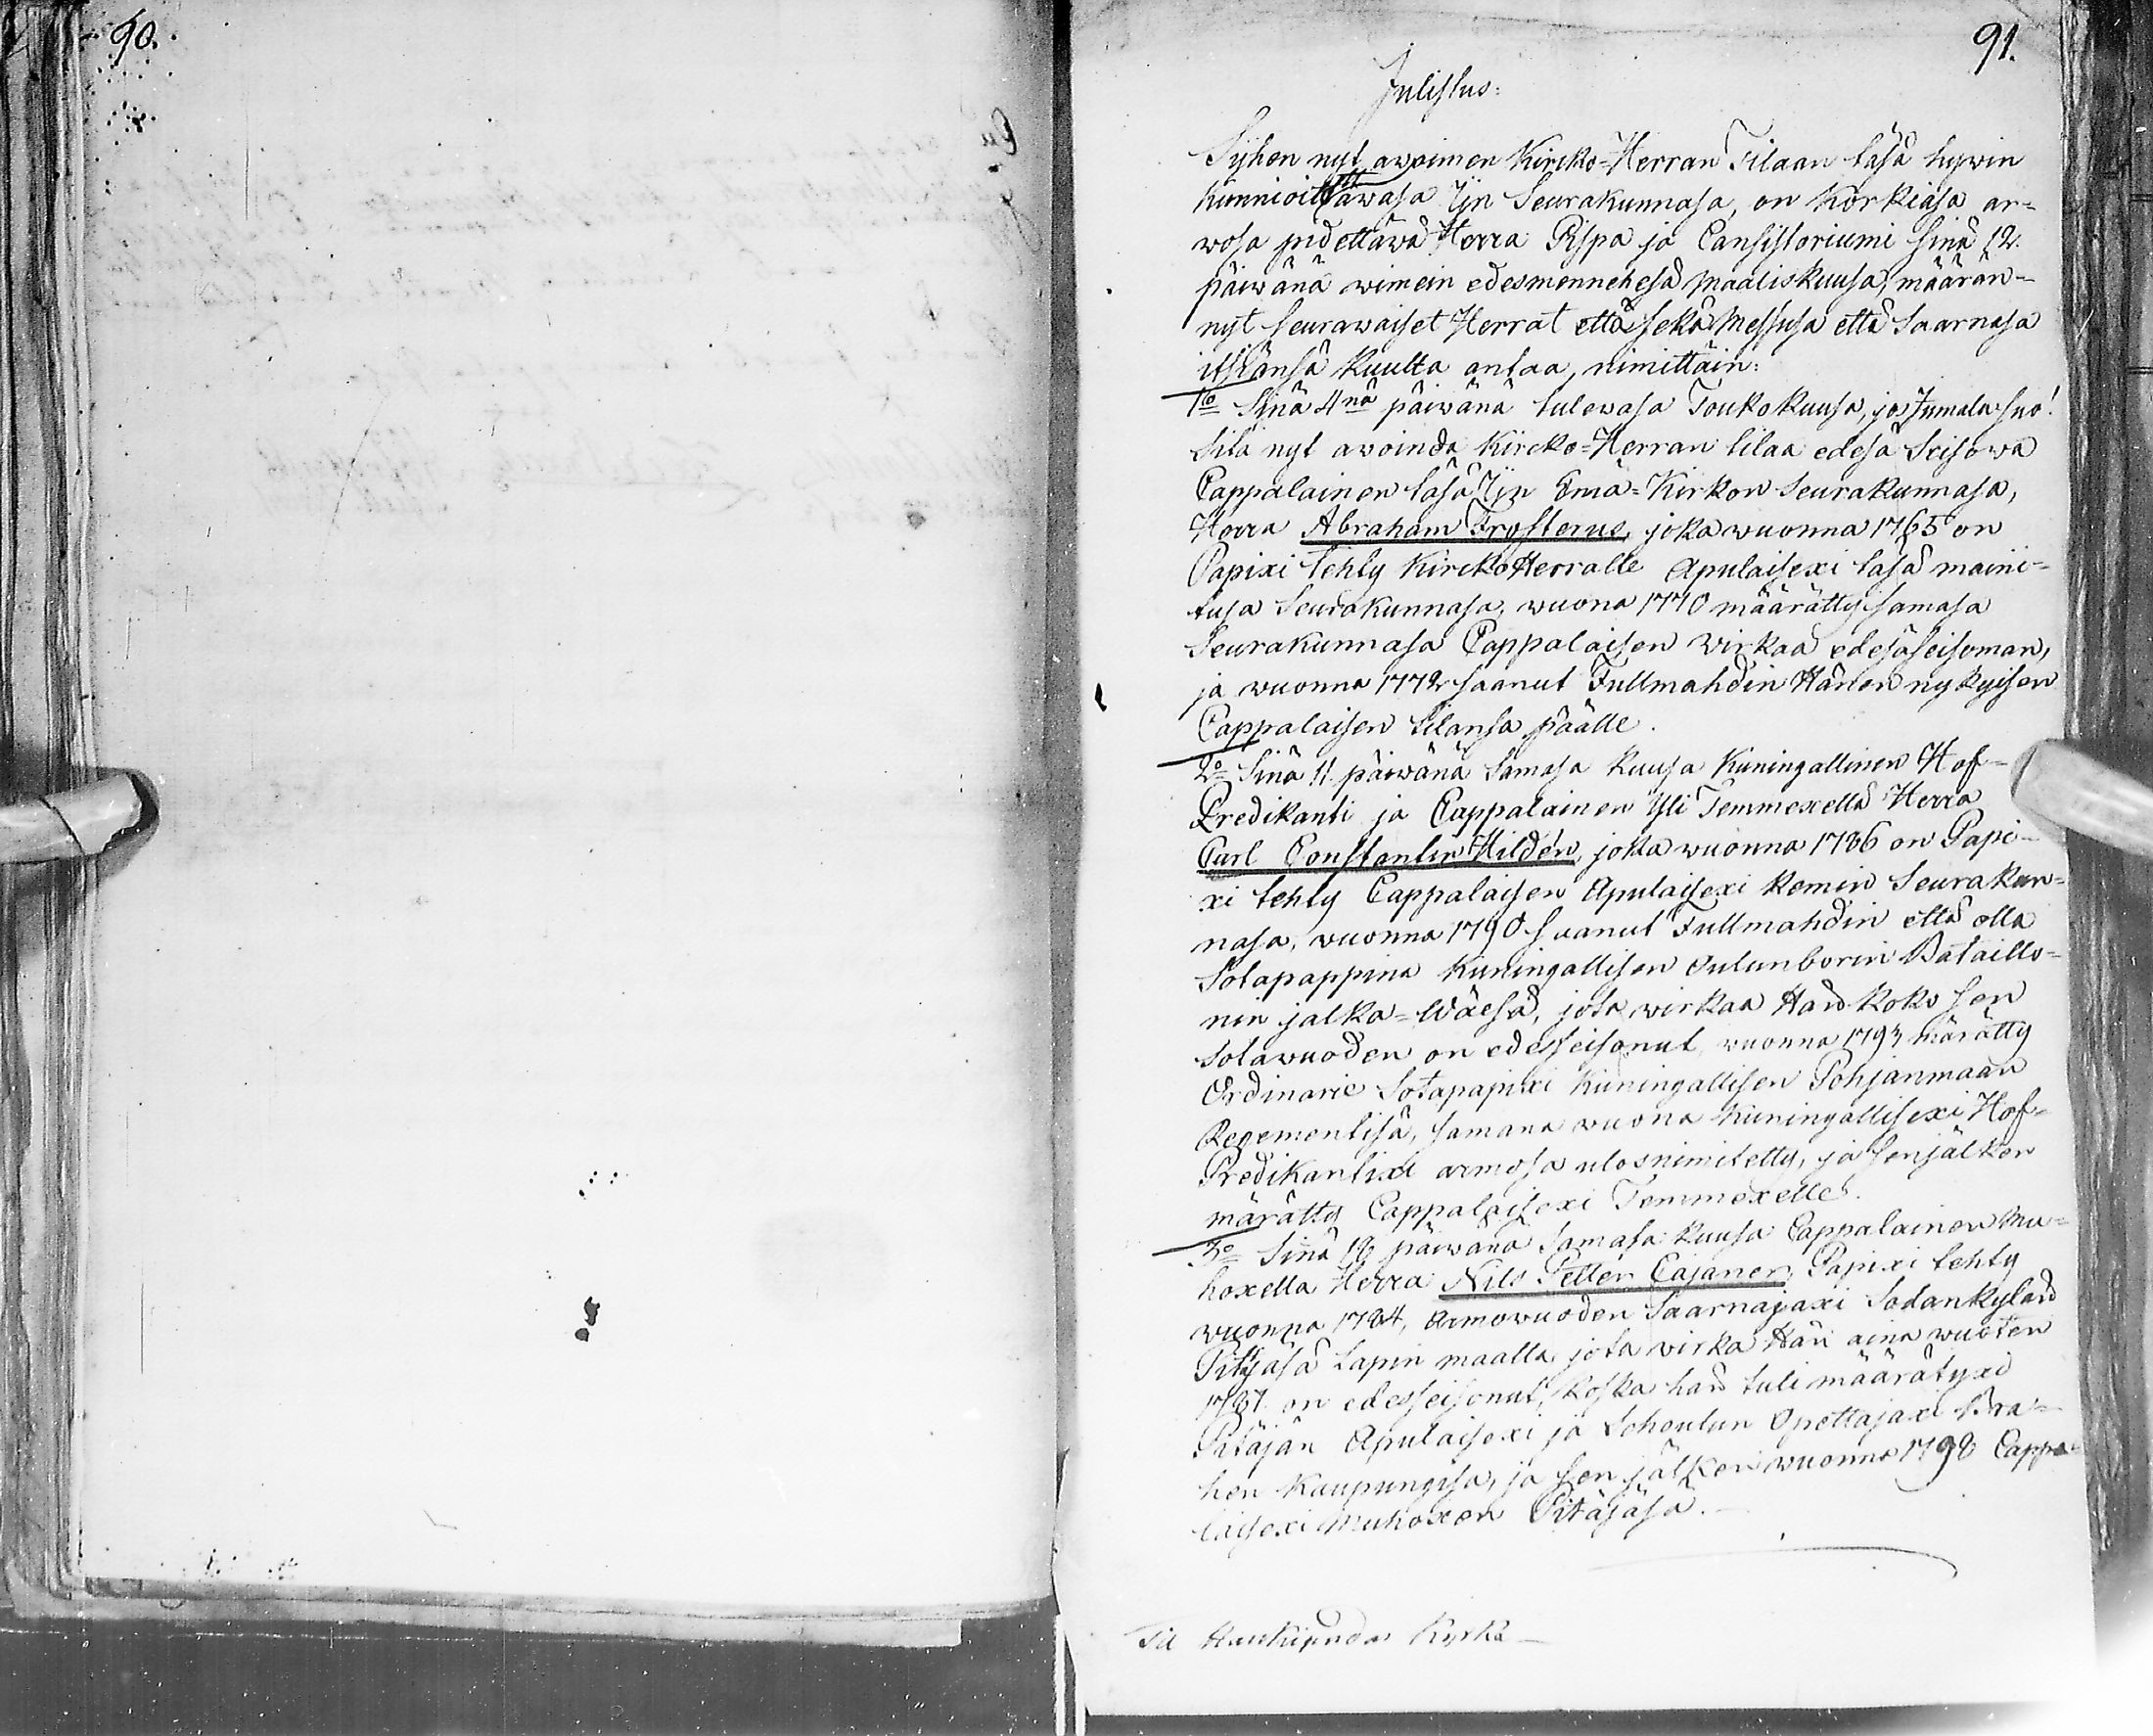 90.
91.
Julistus:
Sijhen nyt awoimen Kircko=Herran Tilaan täsä hywin
kunnioitettawasa Ijn Seurakunnasa, on Korkiasa ar=
wosa pidettäwä Herra Pispa ja Consistoriumi sinä 12.
päiwänä wimein edesmennehesä Maaliskuusa, määrän=
nyt seurawaiset Herrat että sekä Messusa että Saarnasa
itsiänsä kuulta antaa, nimittäin:
1o Sinä 4nä päiwänä tulewasa Toukokuusa, jos Jumala suo!
Sitä nyt awoinda Kircko=Herran tilaa edesä Seisowa
Cappalainen täsä Ijn Emä=Kirkon Seurakunnasa,
Herra Abraham Frosterus, joka wuonna 1765 on
Papixi tehty KirckoHerralle Apulaisexi täsä maini=
tusa Seurakunnasa, wuona 1770 määrätty samasa
Seurakunnasa Cappalaisen Wirkaa edesäseisoman,
ja wuonna 1772 saanut Fullmahdin Hänen nykyisen
Cappalaisen tilansa päälle.
2o Sinä 11 päiwänä Samasa Kuusa Kuningallinen Hof=
Predikanti ja Cappalainen Yli Temmexellä Herra
Carl Constantin Hildén, joka wuonna 1786 on Papi=
xi tehty Cappalaisen Apulaisexi Kemin Seurakun=
nasa, wuonna 1790 saanut Fullmahdin että olla
Sotapappina Kuningallisen Oulunborin Bataillo=
nin jalka=Wäesä, jota wirkaa Hän koko sen
Sotawuoden on edesseisonut, wuonna 1793 märätty
Ordinarie Sotapapixi Kuningallisen Pohjanmaan
Regementisä, samana wuona Kuningallisexi Hof=
Predikantixi armosa ulosnimitetty, ja senjälken
märätty Cappalaisexi Temmexelle.
3o Sinä 18 päiwänä Samasa Kuusa Cappalainen Mu=
hoxella Herra Nils Petter Cajaner, Papixi tehty
wuonna 1784, Armowuoden Saarnajaxi Sodankylän
Pitäjäsä Lapin maalla, jota wirka Hän aina wuoten
1787 on edesseisonut, koska hän tuli määrätyxi
Pitäjän Apulaisexi ja Schoulun Opettajaxi Bra=
hen Kaupungisa, ja sen jälken wuonna 1798 Cappa=
laisexi Muhoxen Pitäjäsä.
Til Haukipudas Kyrka